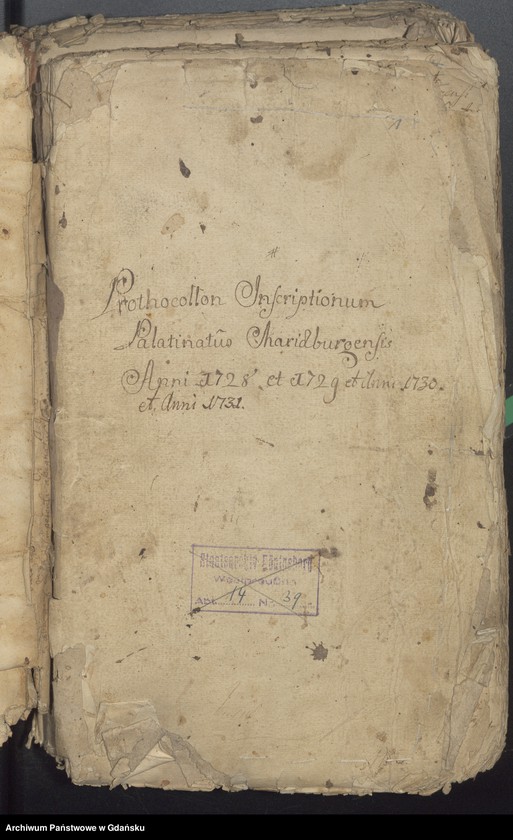 Prothocollon Inscriptionum
Palatinatûs Mariæburgensis
Anni 1728 et 1729 et Anni 1730.
et Anni 1731.
Staatsarchiv Königsberg
Westpreußen
Abt. 14 Nr. 39
Archiwum Państwowe w Gdańsku